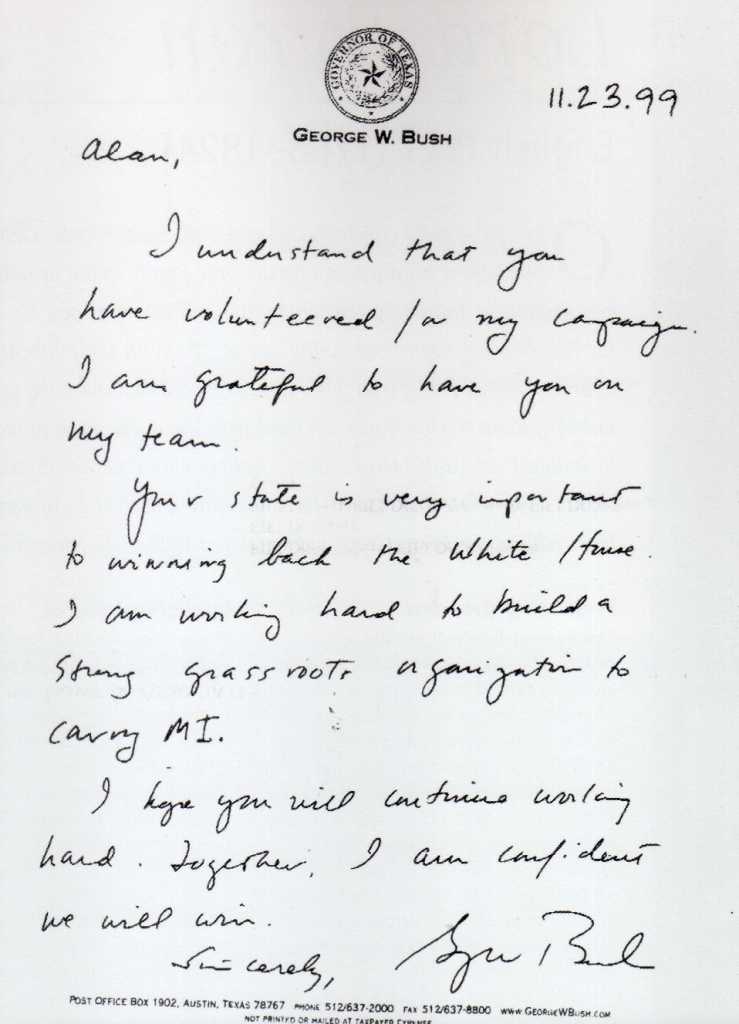 GOVERNOR OF TEXAS
GEORGE W. BUSH
11.23.99
Alan,
I understand that you
have volunteered for my campaign.
I am grateful to have you on
my team.
Your state is very important
to winning back the White House.
I am working hard to build a
strong grassroots organization to
carry MI.
I hope you will continue working
hard. Together, I am confident
we will win.
Sincerely,
George Bush
POST OFFICE BOX 1902, AUSTIN, TEXAS 78767 PHONE 512/637-2000 FAX 512/637-8800 WWW.GEORGEWBUSH.COM
NOT PRINTED OR MAILED AT TAXPAYER EXPENSE